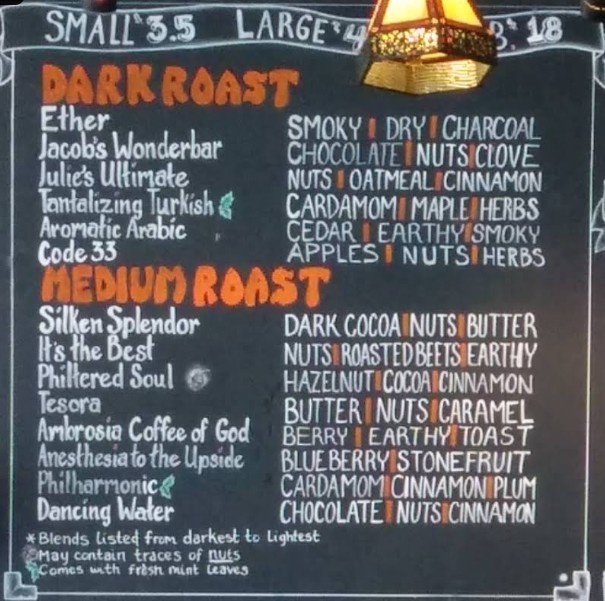 SMALL $3.5 LARGE $4 18
DARK ROAST
Ether SMOKY | DRY | CHARCOAL
Jacob's Wonderbar CHOCOLATE | NUTS | CLOVE
Julie's Ultimate NUTS | OATMEAL | CINNAMON
Tantalizing Turkish CARDAMOM | MAPLE | HERBS
Aromatic Arabic CEDAR | EARTHY | SMOKY
Code 33 APPLES | NUTS | HERBS
MEDIUM ROAST
Silken Splendor DARK COCOA | NUTS | BUTTER
It's the Best NUTS | ROASTED BEETS | EARTHY
Philtered Soul HAZELNUT | COCOA | CINNAMON
Tesora BUTTER | NUTS | CARAMEL
Ambrosia Coffee of God BERRY | EARTHY | TOAST
Anesthesia to the Upside BLUEBERRY | STONEFRUIT
Philharmonic CARDAMOM | CINNAMON | PLUM
Dancing Water CHOCOLATE | NUTS | CINNAMON
*Blends listed from darkest to lightest
May contain traces of nuts
Comes with fresh mint leaves